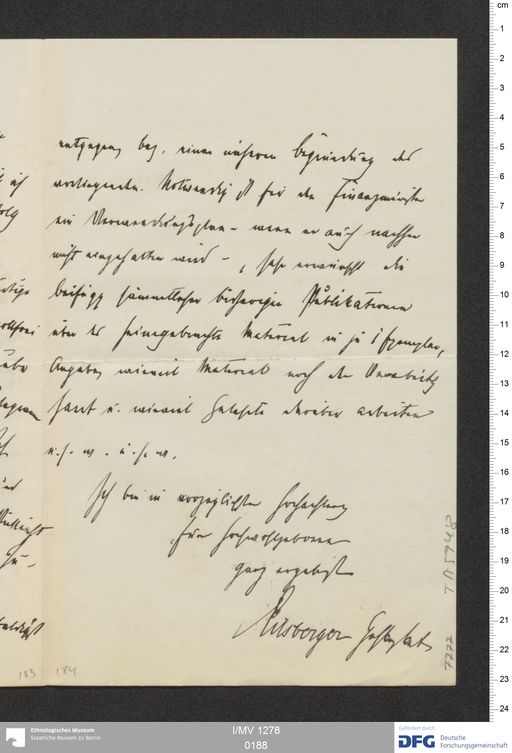 entgegen bez. einer näheren Begründung des
vorliegenden. Notwendig ist für den Finanzminister
ein Verwendungsplan - wenn er auch nachher
nicht eingehalten wird -, sehr erwünscht die
Beifügg sämmtlicher bisherigen Publikationen
über das heimgebrachte Material in je 1 Exemplar,
Angaben wieviel Material noch der Verarbeitg
harrt u. wieviel Gelehrte darüber arbeiten
u.s.w. u.s.w.
Ich bin in vorzüglichster Hochachtung
Euer Hochwohlgeboren
ganz ergebenster
183 184
7222 T A 5948
cm
1
2
3
4
5
6
7
8
9
10
11
12
13
14
15
16
17
18
19
20
21
22
23
24
Ethnologisches Museum
Staatliche Museen zu Berlin
I/MV 1278
0188
Gefördert durch
DFG Deutsche
Forschungsgemeinschaft